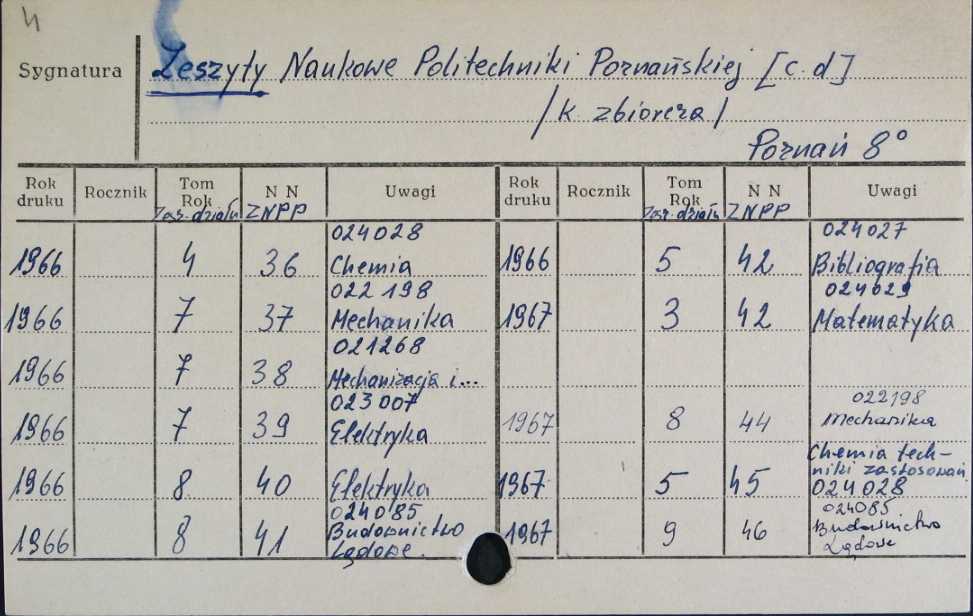 4
Sygnatura
Zeszyty Naukowe Politechniki Poznańskiej [c.d]
/K zbiorcza/
Poznań 8°
Rok druku Rocznik Tom Rok Zesz. działu N N ZNPP Uwagi Rok druku Rocznik Tom Rok Zesz. działu N N ZNPP Uwagi
1966 4 36 024028 Chemia 1966 5 42 024027 Bibliografia
1966 7 37 022198 Mechanika 1967 3 42 024029 Matematyka
1966 7 38 021268 Mechanizacja i...
1966 7 39 023007 Elektryka 1967 8 44 022198 Mechanika
1966 8 40 Elektryka 1967 5 45 Chemia tech-niki zastosowań 024028
1966 8 41 024085 Budownictwo Lądowe. 1967 9 46 024085 Budownictwo Lądowe